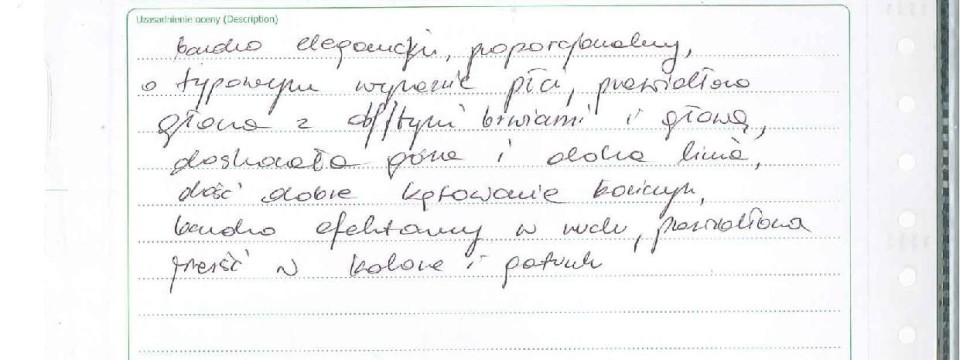 Uzasadnienie oceny (Description)
bardzo elegancki, proporcjonalny,
o typowym wyrazie płci, prawidłowa
głowa z obfitymi brwiami i głową,
doskonała górna i dolna linia,
dość dobre kątowanie kończyn,
bardzo efektowny w ruchu, prawidłowa
sierść w kolorze i gatunku